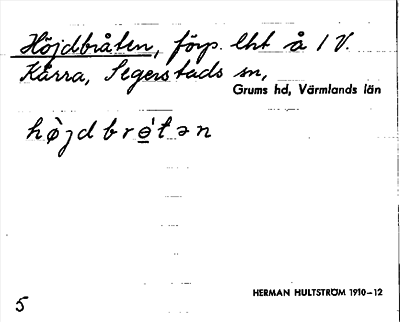 Höjdbråten, förp. lht å 1 V.
Kärra, Segerstads sn,
Grums hd, Värmlands län
hø̀jdbrɵ́tən
HERMAN HULTSTRÖM 1910–12
5